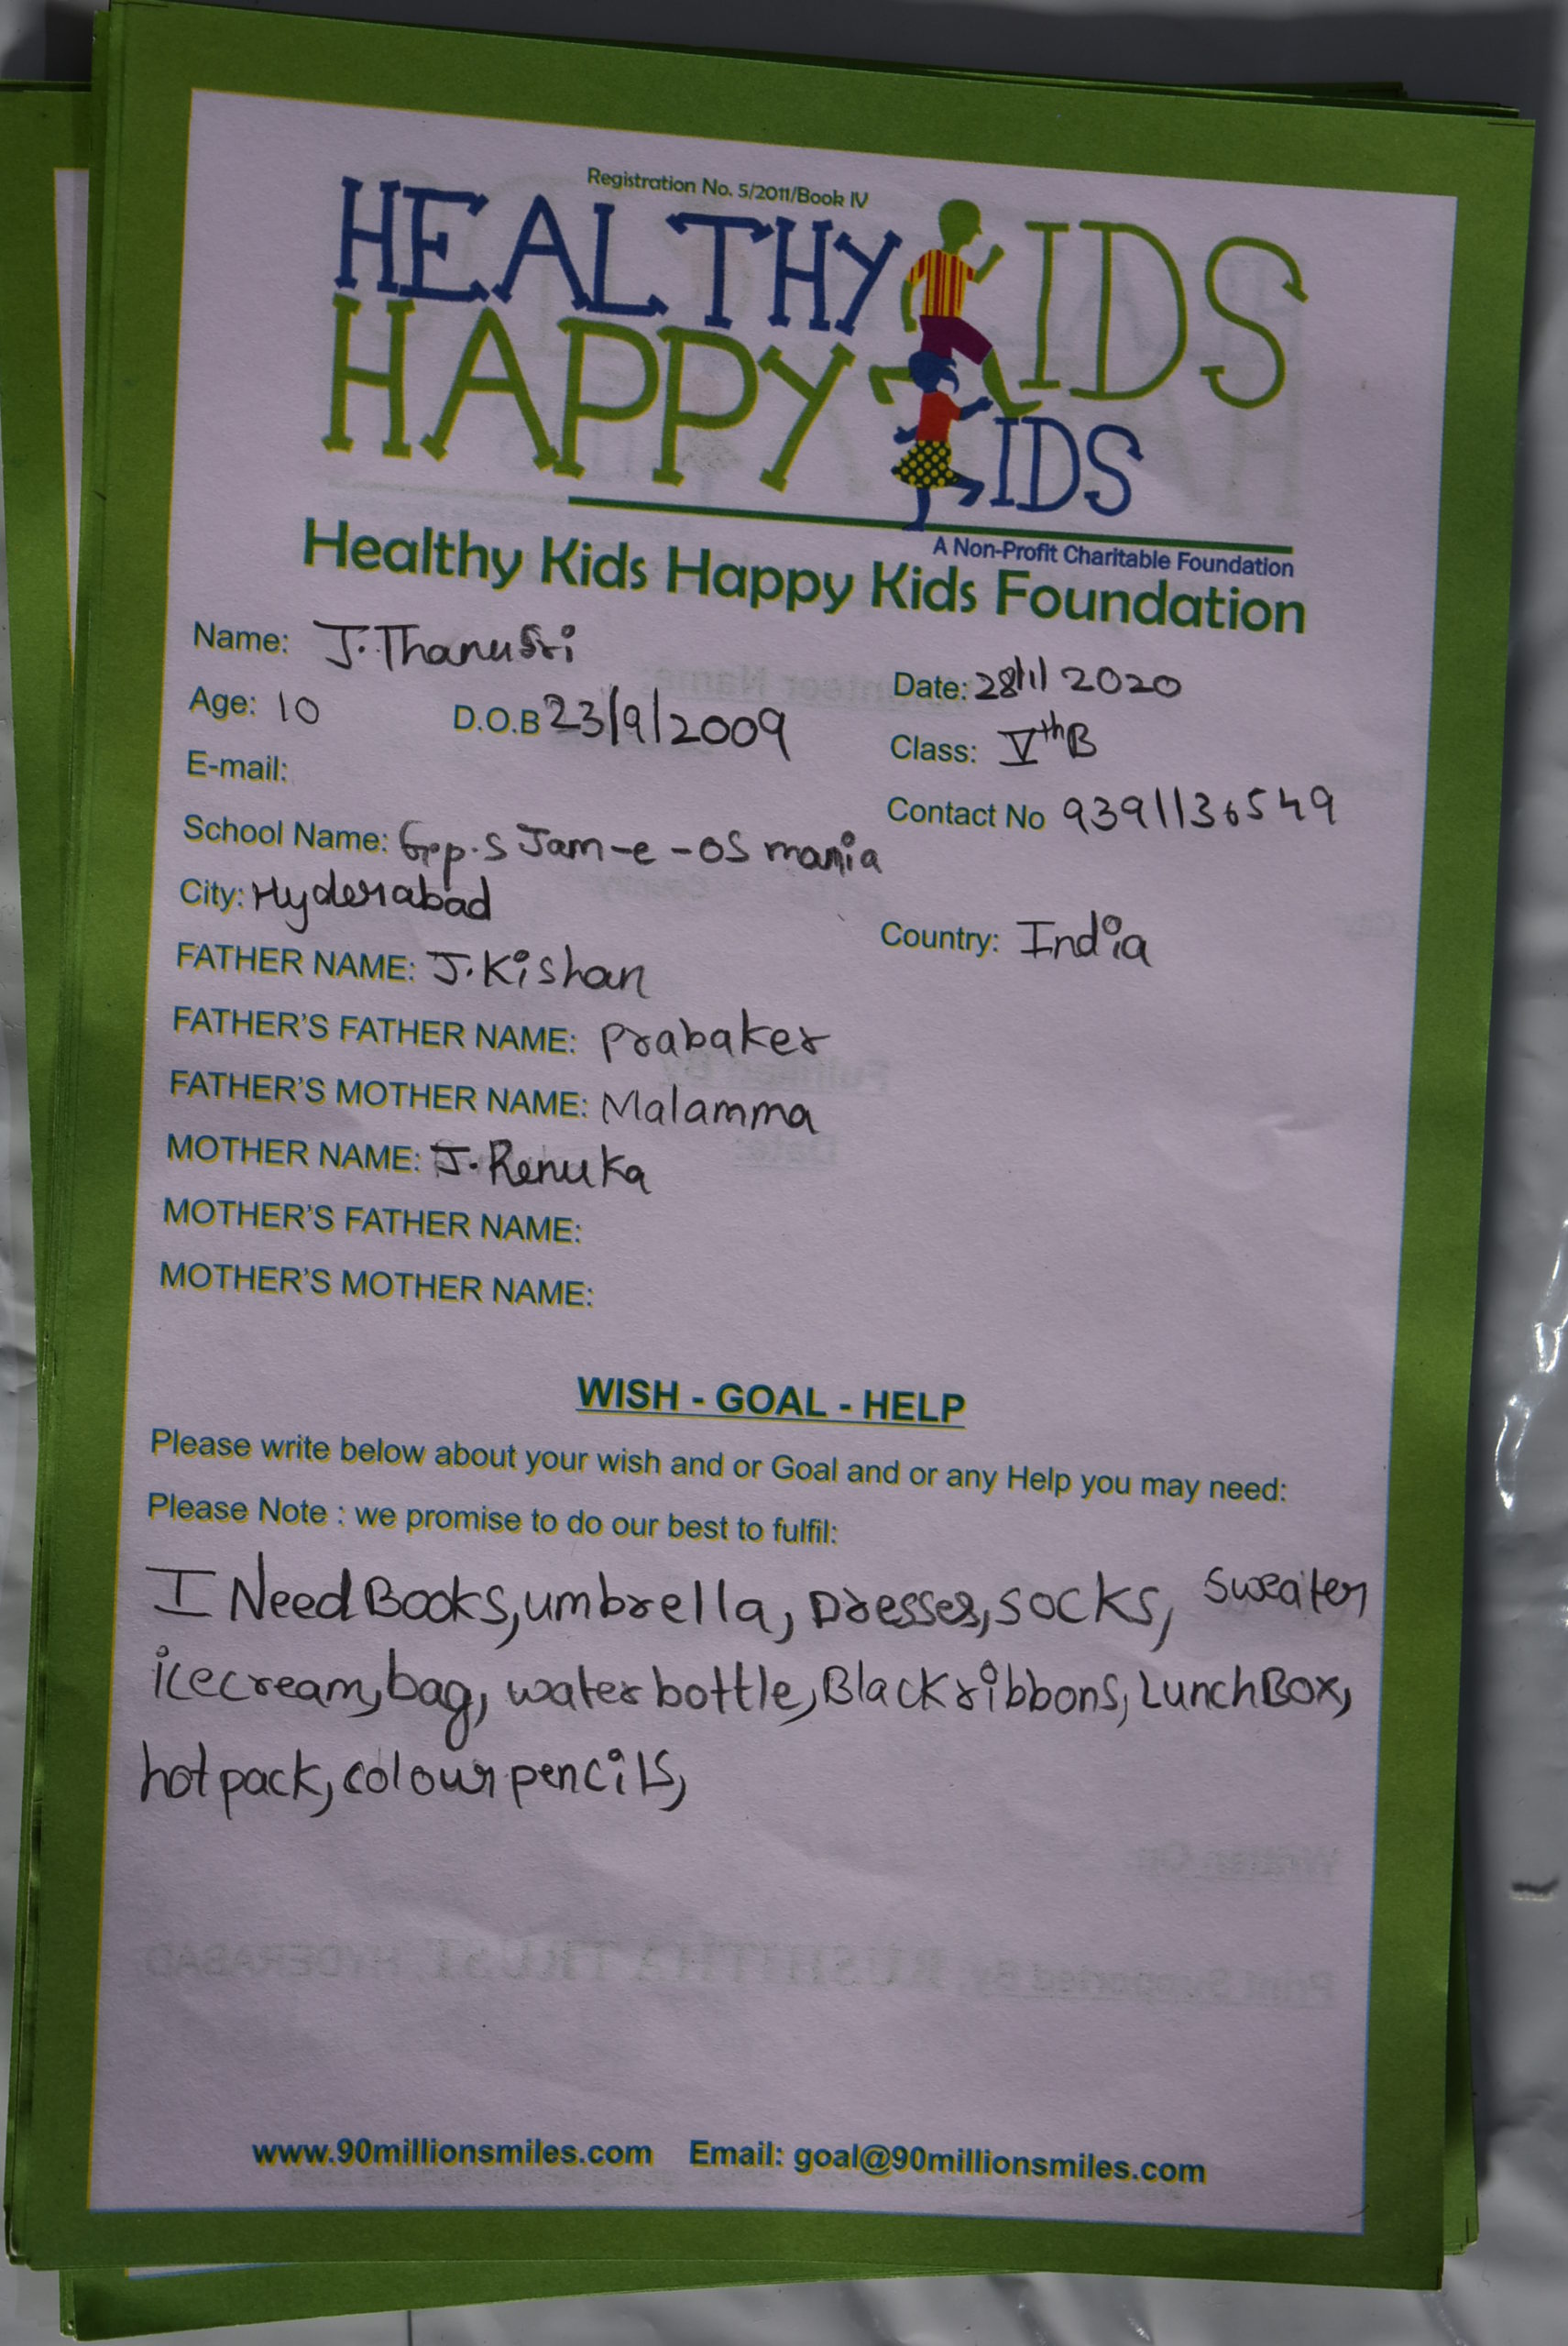 Registration No. 5/2011/Book IV
HEALTHY KIDS
HAPPY KIDS
A Non-Profit Charitable Foundation
Healthy Kids Happy Kids Foundation
Name: J. ThanuSri
Date: 28/1/2020
Age: 10 D.O.B 23/9/2009
Class: Vth B
E-mail:
Contact No 9391136549
School Name: Gpp.S Jam-e-osmania
City: Hyderabad
Country: India
FATHER NAME: J. Kishan
FATHER'S FATHER NAME: Prabaker
FATHER'S MOTHER NAME: Malamma
MOTHER NAME: J. Renuka
MOTHER'S FATHER NAME:
MOTHER'S MOTHER NAME:
WISH - GOAL - HELP
Please write below about your wish and or Goal and or any Help you may need:
Please Note : we promise to do our best to fulfil:
I Need Books, umbrella, Dresses, socks, sweater
icecream, bag, water bottle, Black ribbons, Lunch Box,
hot pack, colour pencils,
www.90millionsmiles.com Email: goal@90millionsmiles.com